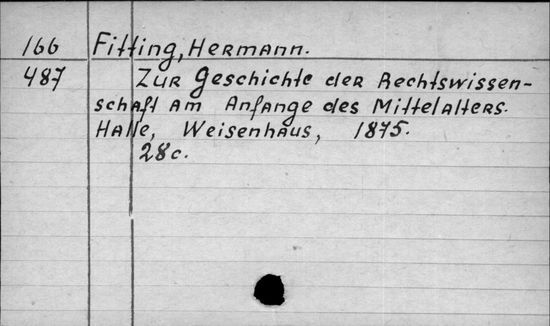 166 Fitting, Hermann.
487 Zur Geschichte der Rechtswissen-
schaft am Anfange des Mittelalters.
Halle, Weisenhaus, 1875.
28c.